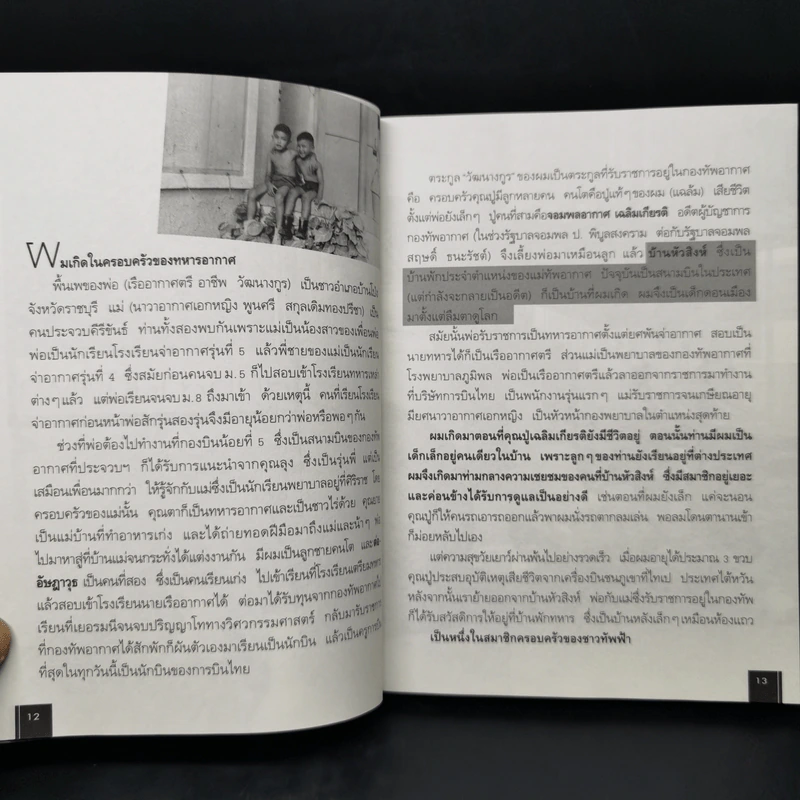 ผมเกิดในครอบครัวของทหารอากาศ
พื้นเพของพ่อ (เรืออากาศตรี อาชีพ วัฒนางกูร) เป็นชาวอำเภอบ้านโป่ง
จังหวัดราชบุรี แม่ (นาวาอากาศเอกหญิง พูนศรี สกุลเดิมทองปรีชา) เป็น
คนประจวบคีรีขันธ์ ท่านทั้งสองพบกันเพราะแม่เป็นน้องสาวของเพื่อนพ่อ
พ่อเป็นนักเรียนโรงเรียนจ่าอากาศรุ่นที่ 5 แล้วพี่ชายของแม่เป็นนักเรียน
จ่าอากาศรุ่นที่ 4 ซึ่งสมัยก่อนคนจบ ม.5 ก็ไปสอบเข้าโรงเรียนทหารเหล่า
ต่างๆ แล้ว แต่พ่อเรียนจนจบ ม.8 ถึงมาเข้า ด้วยเหตุนี้ คนที่เรียนโรงเรียน
จ่าอากาศก่อนหน้าพ่อสักรุ่นสองรุ่นจึงมีอายุน้อยกว่าพ่อหรือพอๆ กัน
ช่วงที่พ่อต้องไปทำงานที่กองบินน้อยที่ 5 ซึ่งเป็นสนามบินของกองทัพ
อากาศที่ประจวบฯ ก็ได้รับการแนะนำจากคุณลุง ซึ่งเป็นรุ่นพี่ แต่เป็น
เสมือนเพื่อนมากกว่า ให้รู้จักกับแม่ซึ่งเป็นนักเรียนพยาบาลอยู่ที่ศิริราช โดย
ครอบครัวของแม่นั้น คุณตาก็เป็นทหารอากาศและเป็นชาวไร่ด้วย คุณยาย
เป็นแม่บ้านที่ทำอาหารเก่ง และได้ถ่ายทอดฝีมือมาถึงแม่และน้าๆ พ่อ
ไปมาหาสู่ที่บ้านแม่จนกระทั่งได้แต่งงานกัน มีผมเป็นลูกชายคนโต และ
อัษฎาวุธ เป็นคนที่สอง ซึ่งเป็นคนเรียนเก่ง ไปเข้าเรียนที่โรงเรียนเตรียมทหาร
แล้วสอบเข้าโรงเรียนนายเรืออากาศได้ ต่อมาได้รับทุนจากกองทัพอากาศไป
เรียนที่เยอรมนีจนจบปริญญาโททางวิศวกรรมศาสตร์ กลับมารับราชการ
ที่กองทัพอากาศได้สักพักก็ผันตัวเองมาเรียนเป็นนักบิน แล้วเป็นครูการบิน
ที่สุดในทุกวันนี้เป็นนักบินของการบินไทย
12
ตระกูล "วัฒนางกูร" ของผมเป็นตระกูลที่รับราชการอยู่ในกองทัพอากาศ
คือ ครอบครัวคุณปู่มีลูกหลายคน คนโตคือปู่แท้ๆ ของผม (แฉล้ม) เสียชีวิต
ตั้งแต่พ่อยังเล็กๆ ปู่คนที่สามคือจอมพลอากาศ เฉลิมเกียรติ อดีตผู้บัญชาการ
กองทัพอากาศ (ในช่วงรัฐบาลจอมพล ป. พิบูลสงคราม ต่อกับรัฐบาลจอมพล
สฤษดิ์ ธนะรัชต์) จึงเลี้ยงพ่อมาเหมือนลูก แล้ว บ้านหัวสิงห์ ซึ่งเป็น
บ้านพักประจำตำแหน่งของแม่ทัพอากาศ ปัจจุบันเป็นสนามบินในประเทศ
(แต่กำลังจะกลายเป็นอดีต) ก็เป็นบ้านที่ผมเกิด ผมจึงเป็นเด็กดอนเมือง
มาตั้งแต่ลืมตาดูโลก
สมัยนั้นพ่อรับราชการเป็นทหารอากาศตั้งแต่ยศพันจ่าอากาศ สอบเป็น
นายทหารได้ก็เป็นเรืออากาศตรี ส่วนแม่เป็นพยาบาลของกองทัพอากาศที่
โรงพยาบาลภูมิพล พ่อเป็นเรืออากาศตรีแล้วลาออกจากราชการมาทำงาน
ที่บริษัทการบินไทย เป็นพนักงานรุ่นแรกๆ แม่รับราชการจนเกษียณอายุ
มียศนาวาอากาศเอกหญิง เป็นหัวหน้ากองพยาบาลในตำแหน่งสุดท้าย
ผมเกิดมาตอนที่คุณปู่เฉลิมเกียรติยังมีชีวิตอยู่ ตอนนั้นท่านมีผมเป็น
เด็กเล็กอยู่คนเดียวในบ้าน เพราะลูกๆ ของท่านยังเรียนอยู่ที่ต่างประเทศ
ผมจึงเกิดมาท่ามกลางความเชยชมของคนที่บ้านหัวสิงห์ ซึ่งมีสมาชิกอยู่เยอะ
และค่อนข้างได้รับการดูแลเป็นอย่างดี เช่นตอนที่ผมยังเล็ก แค่จะนอน
คุณปู่ก็ให้คนรถเอารถออกแล้วพาผมนั่งรถตากลมเล่น พอลมโดนตานานเข้า
ก็ม่อยหลับไปเอง
แต่ความสุขวัยเยาว์ผ่านพ้นไปอย่างรวดเร็ว เมื่อผมอายุได้ประมาณ 3 ขวบ
คุณปู่ประสบอุบัติเหตุเสียชีวิตจากเครื่องบินชนภูเขาที่ไทเป ประเทศไต้หวัน
หลังจากนั้นเราย้ายออกจากบ้านหัวสิงห์ พ่อกับแม่ซึ่งรับราชการอยู่ในกองทัพ
ก็ได้รับสวัสดิการให้อยู่ที่บ้านพักทหาร ซึ่งเป็นบ้านหลังเล็กๆ เหมือนห้องแถว
เป็นหนึ่งในสมาชิกครอบครัวของชาวทัพฟ้า
13